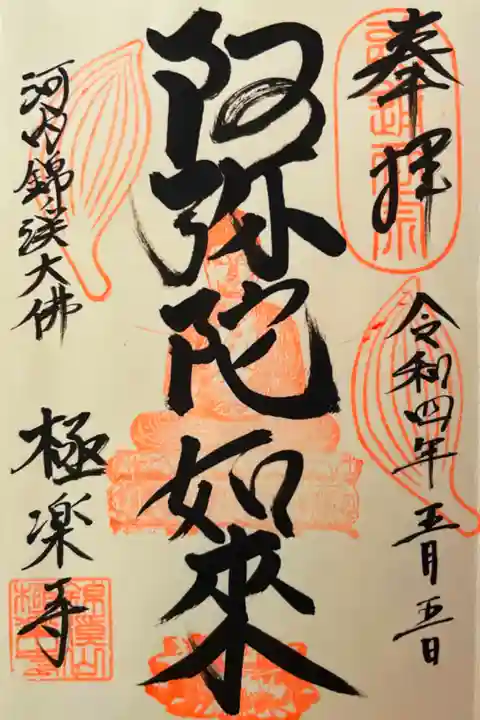 奉拝
令和四年五月五日
阿弥陀如來
河内錦渓大佛
極楽寺